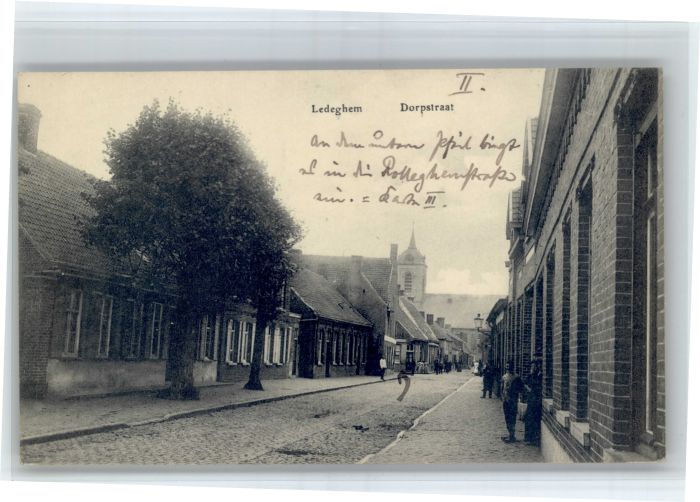 II.
Ledeghem Dorpstraat
An dem untern Pfeil biegt
es in die Rolleghemstraße
ein. = Karte III.